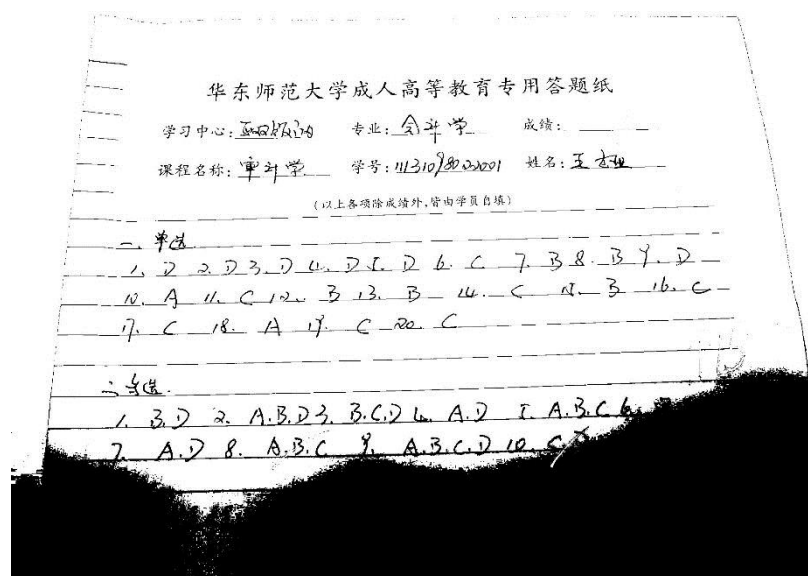 华东师范大学成人高等教育专用答题纸
学习中心: 专业:会计学 成绩:
课程名称:审计学 学号: 姓名:王
(以上各项除成绩外,皆由学员自填)
一、单选
1. D 2. D 3. D 4. D 5. D 6. C 7. B 8. B 9. D
10. A 11. C 12. B 13. B 14. C 15. B 16. C
17. C 18. A 19. C 20. C
二、多选.
1. B.D 2. A.B.D 3. B.C.D 4. A.D 5. A.B.C 6.
7. A.D 8. A.B.C 9. A.B.C.D 10. C